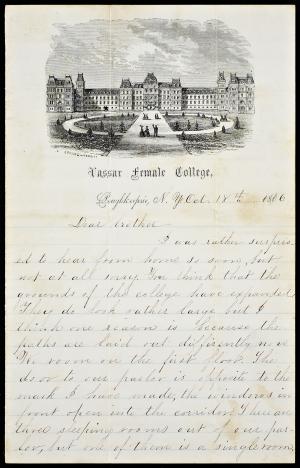 Vassar Female College,
Poughkeepsie, N.Y. Oct. 18th 1866
Dear brother
I was rather surpris
ed to hear from home so soon, but
not at all sorry. You think that the
grounds of the college have expanded
They do look rather large but I
think one reason is because the
paths are laid out differently now
We room on the first floor. The
door to our parlor is opposite to the
mark I have made, the windows in
front open into the corridor. There are
three sleeping rooms out of our par-
lor, but one of them is a single room